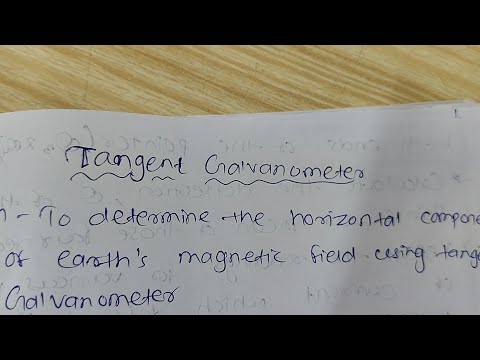 Tangent Galvanometer
n - To determine the horizontal compone
of earth's magnetic field using tange
Galvanometer